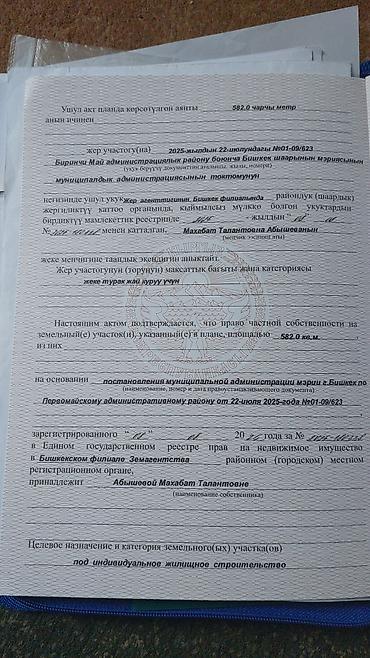 Ушул акт планда көрсөтүлгөн аянты 582.0 чарчы метр
анын ичинен
жер участогу(на) 2025-жылдын 22-июлундагы №01-09/623
Биринчи Май администрациялык району боюнча Бишкек шаарынын мэриясынын
(укук берүүчү документтин аталышы, жылы, номери)
муниципалдык администрациясынын токтомунун
негизинде ушул укук Жер агенттигинин Бишкек филиалында райондук (шаардык)
жергиликтүү каттоо органында, кыймылсыз мүлккө болгон укуктардын
бирдиктүү мамлекеттик реестринде - жылдын "
№ менен катталган, Махабат Талантовна Абышеванын
(менчик ээсинин аты)
жеке менчигине таандык экендигин аныктайт.
Жер участогунун (торунун) максаттык багыты жана категориясы
жеке турак жай куруу үчүн
Настоящим актом подтверждается, что право частной собственности на
земельный(е) участок(и), указанный(е) в плане, площадью 582.0 кв.м.
из них
на основании постановления муниципальной администрации мэрии г.Бишкек по
(наименование, номер и дата правоустанавливающего документа)
Первомайскому административному району от 22-июля 2025-года №01-09/623
зарегистрированного " " 20 года за №
в Едином государственном реестре прав на недвижимое имущество
в Бишкекском филиале Земагентства районном (городском) местном
регистрационном органе,
принадлежит Абышевой Махабат Талантовне
(наименование собственника)
Целевое назначение и категория земельного(ых) участка(ов)
под индивидуальное жилищное строительство